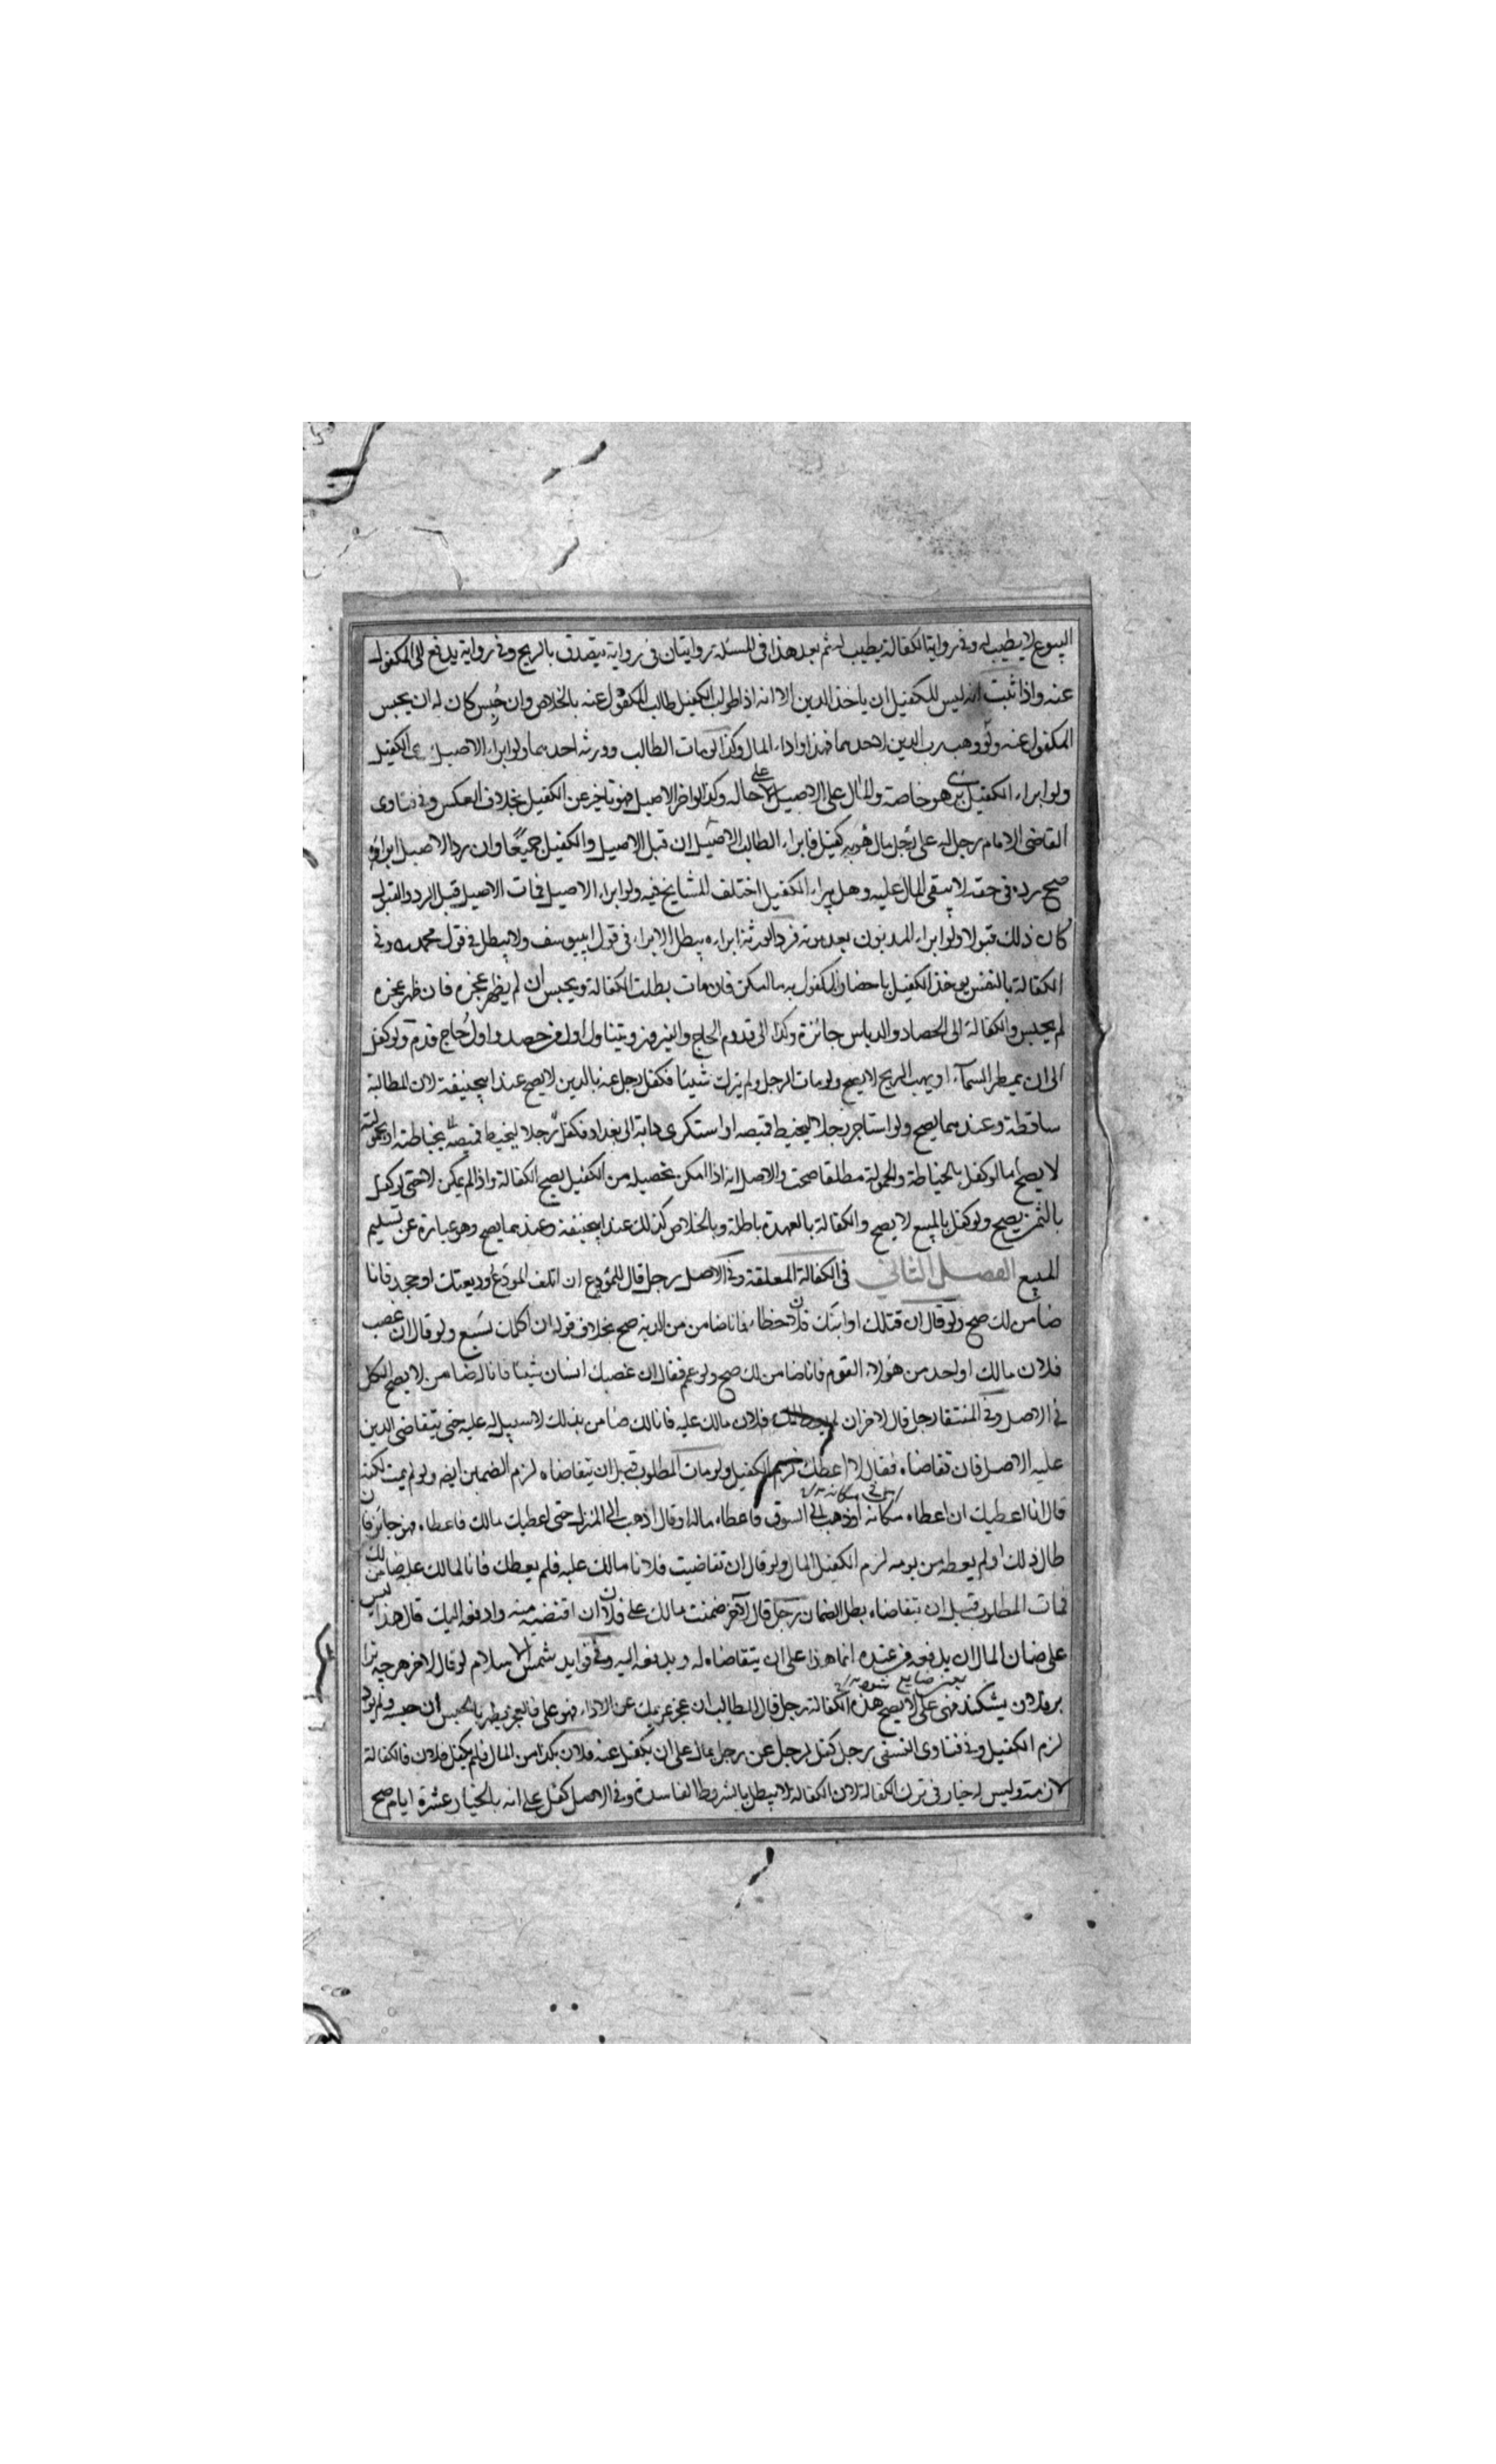 البيوع لا يطيب له وفي رواية الكفالة يطيب له ثم بعد هذا في المسئلة روايتان في رواية يتصدق بالربح وفي رواية يدفع الى المكفول
عنه واذا ثبت انه ليس للكفيل ان ياخذ الدين الا انه اذا طولب الكفيل طالب المكفول عنه بالخلاص وان حُبِس كان له ان يحبس
المكفول عنه ولو وهب رب الدين لاحدهما فهذا واداء المال وكذا لو مات الطالب وورثه احدهما ولو ابراء الاصيل برئ الكفيل
ولو ابراء الكفيل برئ هو خاصة والمال على الاصيل على حاله وكذا لو اخر الاصيل فهو تاخير عن الكفيل بخلاف العكس وفي فتاوى
القاضي الامام رجل له على رجل مال وبه كفيل فابراء الطالب الاصيل ان قبل الاصيل والكفيل جميعًا وان رد الاصيل ابراؤه
صح رده في حقه لا يبقى المال عليه وهل يبراء الكفيل اختلف المشايخ فيه ولو ابراء الاصيل فمات الاصيل قبل الرد والقبول
كان ذلك قبولا ولو ابراء المديون بعد موته فرد الورثة ابراءه يبطل الابراء في قول ابييوسف ولا يبطل في قول محمد وفي
الكفالة بالنفس يوخذ الكفيل باحضار المكفول به ما امكن فان مات بطلت الكفالة ويحبس ان لم يظهر عجزه فان ظهر عجزه
لم يحبس والكفالة الى الحصاد والدياس جائزة وكذا الى قدوم الحاج والنيروز ويتناول اول من حصد واول حاج قدم ولو كفل
الى ان يمطر السماء او يهب الريح لا يصح ولو مات الرجل ولم يترك شيئا فكفل رجل عنه بالدين لا يصح عند ابيحنيفة لان المطالبة
ساقطة وعندهما يصح ولو استاجر رجلا ليخيط قميصه او استكرى دابة الى بغداد فكفل رجلا ليخيط قميصه بخياطته او بحمولته
لا يصح اما لو كفل بالخياطة والحمولة مطلقا صحت والاصل انه اذا امكن تحصيله من الكفيل يصح الكفالة واذا لم يمكن لا حتى لو كفل
بالثمن يصح ولو كفل بالمبيع لا يصح والكفالة بالعهدة باطلة وبالخلاص كذلك عند ابيحنيفة وعندهما يصح وهو عبارة عن تسليم
المبيع الفصل الثاني في الكفالة المعلقة وفي الاصل رجل قال للمودع ان اتلف المودَع وديعتك او جحد فانا
ضامن لك صح ولو قال ان قتلك او ابنك فلان خطاء فانا ضامن من الدية صح بخلاف قوله ان اكلك سبع ولو قال ان غصب
فلان مالك او احد من هؤلاء القوم فانا ضامن لك صح ولو عم فقال ان غصبك انسان شيئا فانا له ضامن لا يصح الكل
في الاصل وفي المنتقا رجل قال لاخر ان لم يعطك فلان مالك عليه فانا لك ضامن بذلك لا سبيل له عليه حتى يتقاضى الدين
عليه الاصل فان تقاضاه فقال لا اعطك لزم الكفيل ولو مات المطلوب قبل ان يتقاضاه لزم الضمين ايضه ولو لم يمت لكنه
قال انا اعطيك ان اعطاه مكانه او ذهب الى السوق فاعطاه ماله او قال اذهب الى المنزل حتى اعطيك مالك فاعطاه فهو جائز فان
طال ذلك او لم يعطه من يومه لزم الكفيل المال ولو قال ان تقاضيت فلانا مالك عليه فلم يعطك فانا لمالك عليه ضامن لك
فمات المطلوب قبل ان يتقاضاه بطل الضمان رجل قال لاخر ضمنت مالك على فلان ان اقتضيه منه وادفعه اليك قال هذا ليس
على ضمان المال ان يدفعه من عنده انما هذا على ان يتقاضاه له ويدفعه اليه وفي فوايد شمس الاسلام لو قال لاخر هرچه ترا
بر فلان بشكند فهى على لا يصح هذه الكفالة رجل قال للطالب ان عجز غريمك عن الاداء فهو على فالعجز يظهر بالحبس ان حبسه ولم يود
لزم الكفيل وفي فتاوى النسفى رجل كفل لرجل عن رجل بمال على ان يكفل عنه فلان بكذا من المال فلم يكفل فلان فالكفالة
لازمة وليس له خيار في ترك الكفالة لان الكفالة لا يبطل بالشروط الفاسدة وفي الاصل كفل على انه بالخيار عشرة ايام صح